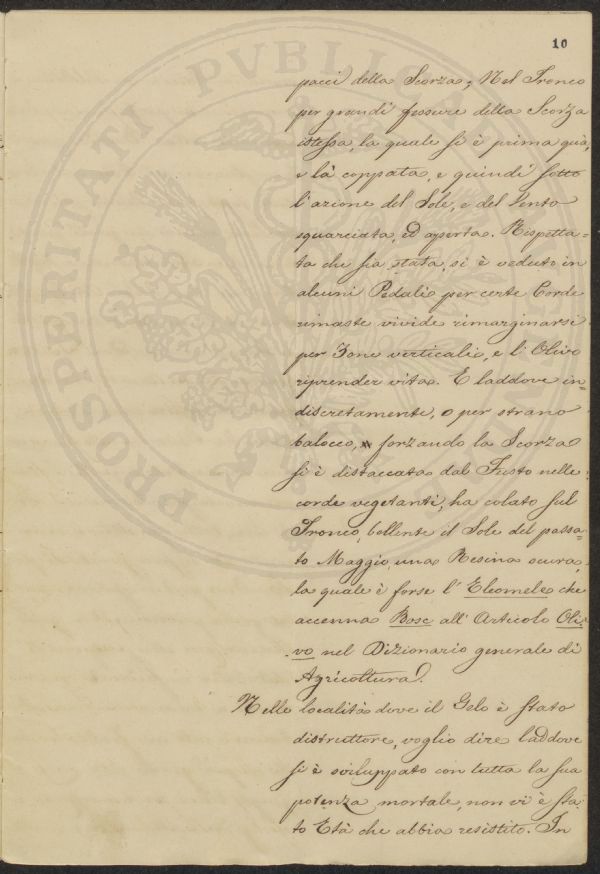 10
pacci della Scorza; Nel Tronco
per grandi fessure della Scorza
istessa, la quale si è prima quà,
e là coppata, e quindi sotto
l'azione del Sole, e del Vento
squarciata, ed aperta. Rispetta=
ta che sia stata, si è veduto in
alcuni Pedali per certe Corde
rimaste vivide rimarginarsi
per Zone verticali, e l'Olivo
riprender vita. E laddove in=
discretamente, o per strano
balocco, forzando la Scorza
si è distaccata dal Fusto nelle
corde vegetanti, ha colato sul
Tronco, bollente il Sole del passa=
to Maggio, una Resina scura,
la quale è forse l'Eleomele che
accenna Bosc all'Articolo Oli=
vo nel Dizionario generale di
Agricoltura.
Nelle località dove il Gelo è stato
distruttore, voglio dire laddove
si è sviluppato con tutta la sua
potenza mortale, non vi è sta=
to Età che abbia resistito. In
PROSPERITATI PVBLICAE